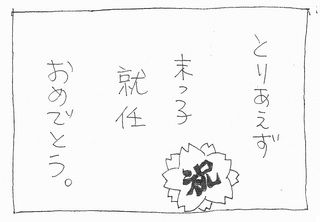 とりあえず
末っ子
就任
おめでとう。
祝